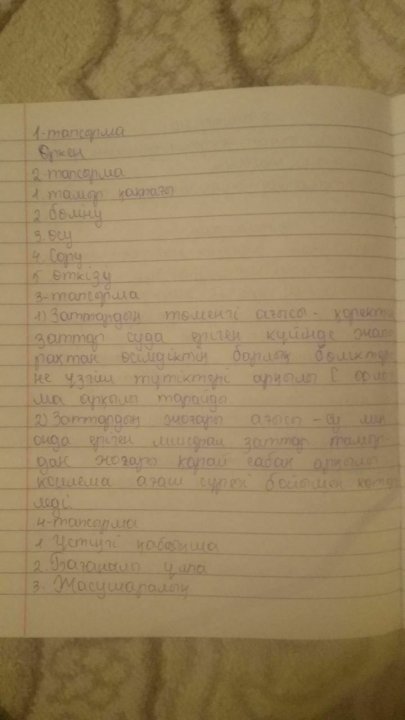 1-тапсорма
Өркен
2-тапсорма
1. тамыр қалпағы
2 бөліну
3. өсу
4. Сору
5 өткізу
3-тапсорма
1) Заттардың төменгі ағысы - қоректі
заттар суда еріген күйінде жапы
рақтан өсімдіктің барлық бөліктері
не ұзын түтіктері арқылы (
ма арқылы таралды
2) Заттардың жоғары ағысы - су мен
онда еріген минерал заттар тамыр
дан жоғары қарай сабақ арқылы
ксилема ағаш сүрегі бойымен көте
леді.
4-тапсорма
1 Үстіңгі қабықша
2. Бағаналы ұлпа
3. Жасушаралық